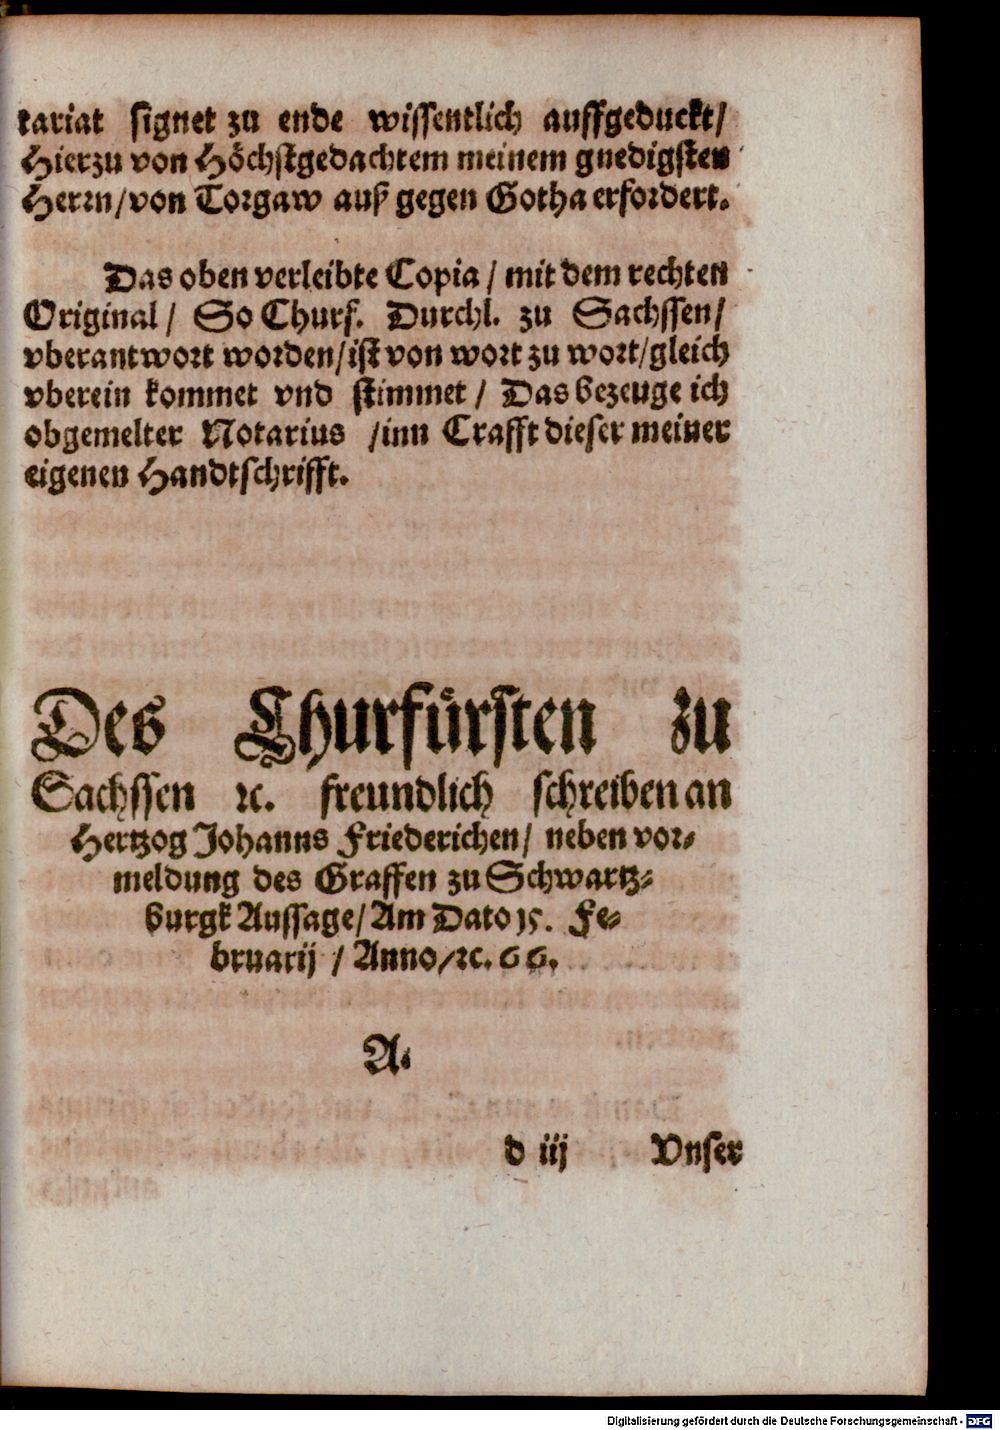 tariat signet zu ende wissentlich auffgeduckt/
Hierzu von Höchstgedachtem meinem gnedigsten
Herrn/von Torgaw auß gegen Gotha erfordert.
Das oben verleibte Copia / mit dem rechten
Original / So Churf. Durchl. zu Sachssen/
vberantwort worden/ist von wort zu wort/gleich
vberein kommet vnd stimmet / Das bezeuge ich
obgemelter Notarius /inn Crafft dieser meiner
eigenen Handtschrifft.
Des Churfürsten zu
Sachssen ꝛc. freundlich schreiben an
Hertzog Johanns Friederichen/ neben vor-
meldung des Graffen zu Schwartz-
burgk Aussage/Am Dato 15. Fe-
bruarij / Anno/ꝛc. 66.
A.
d iij Vnser
Digitalisierung gefördert durch die Deutsche Forschungsgemeinschaft - DFG